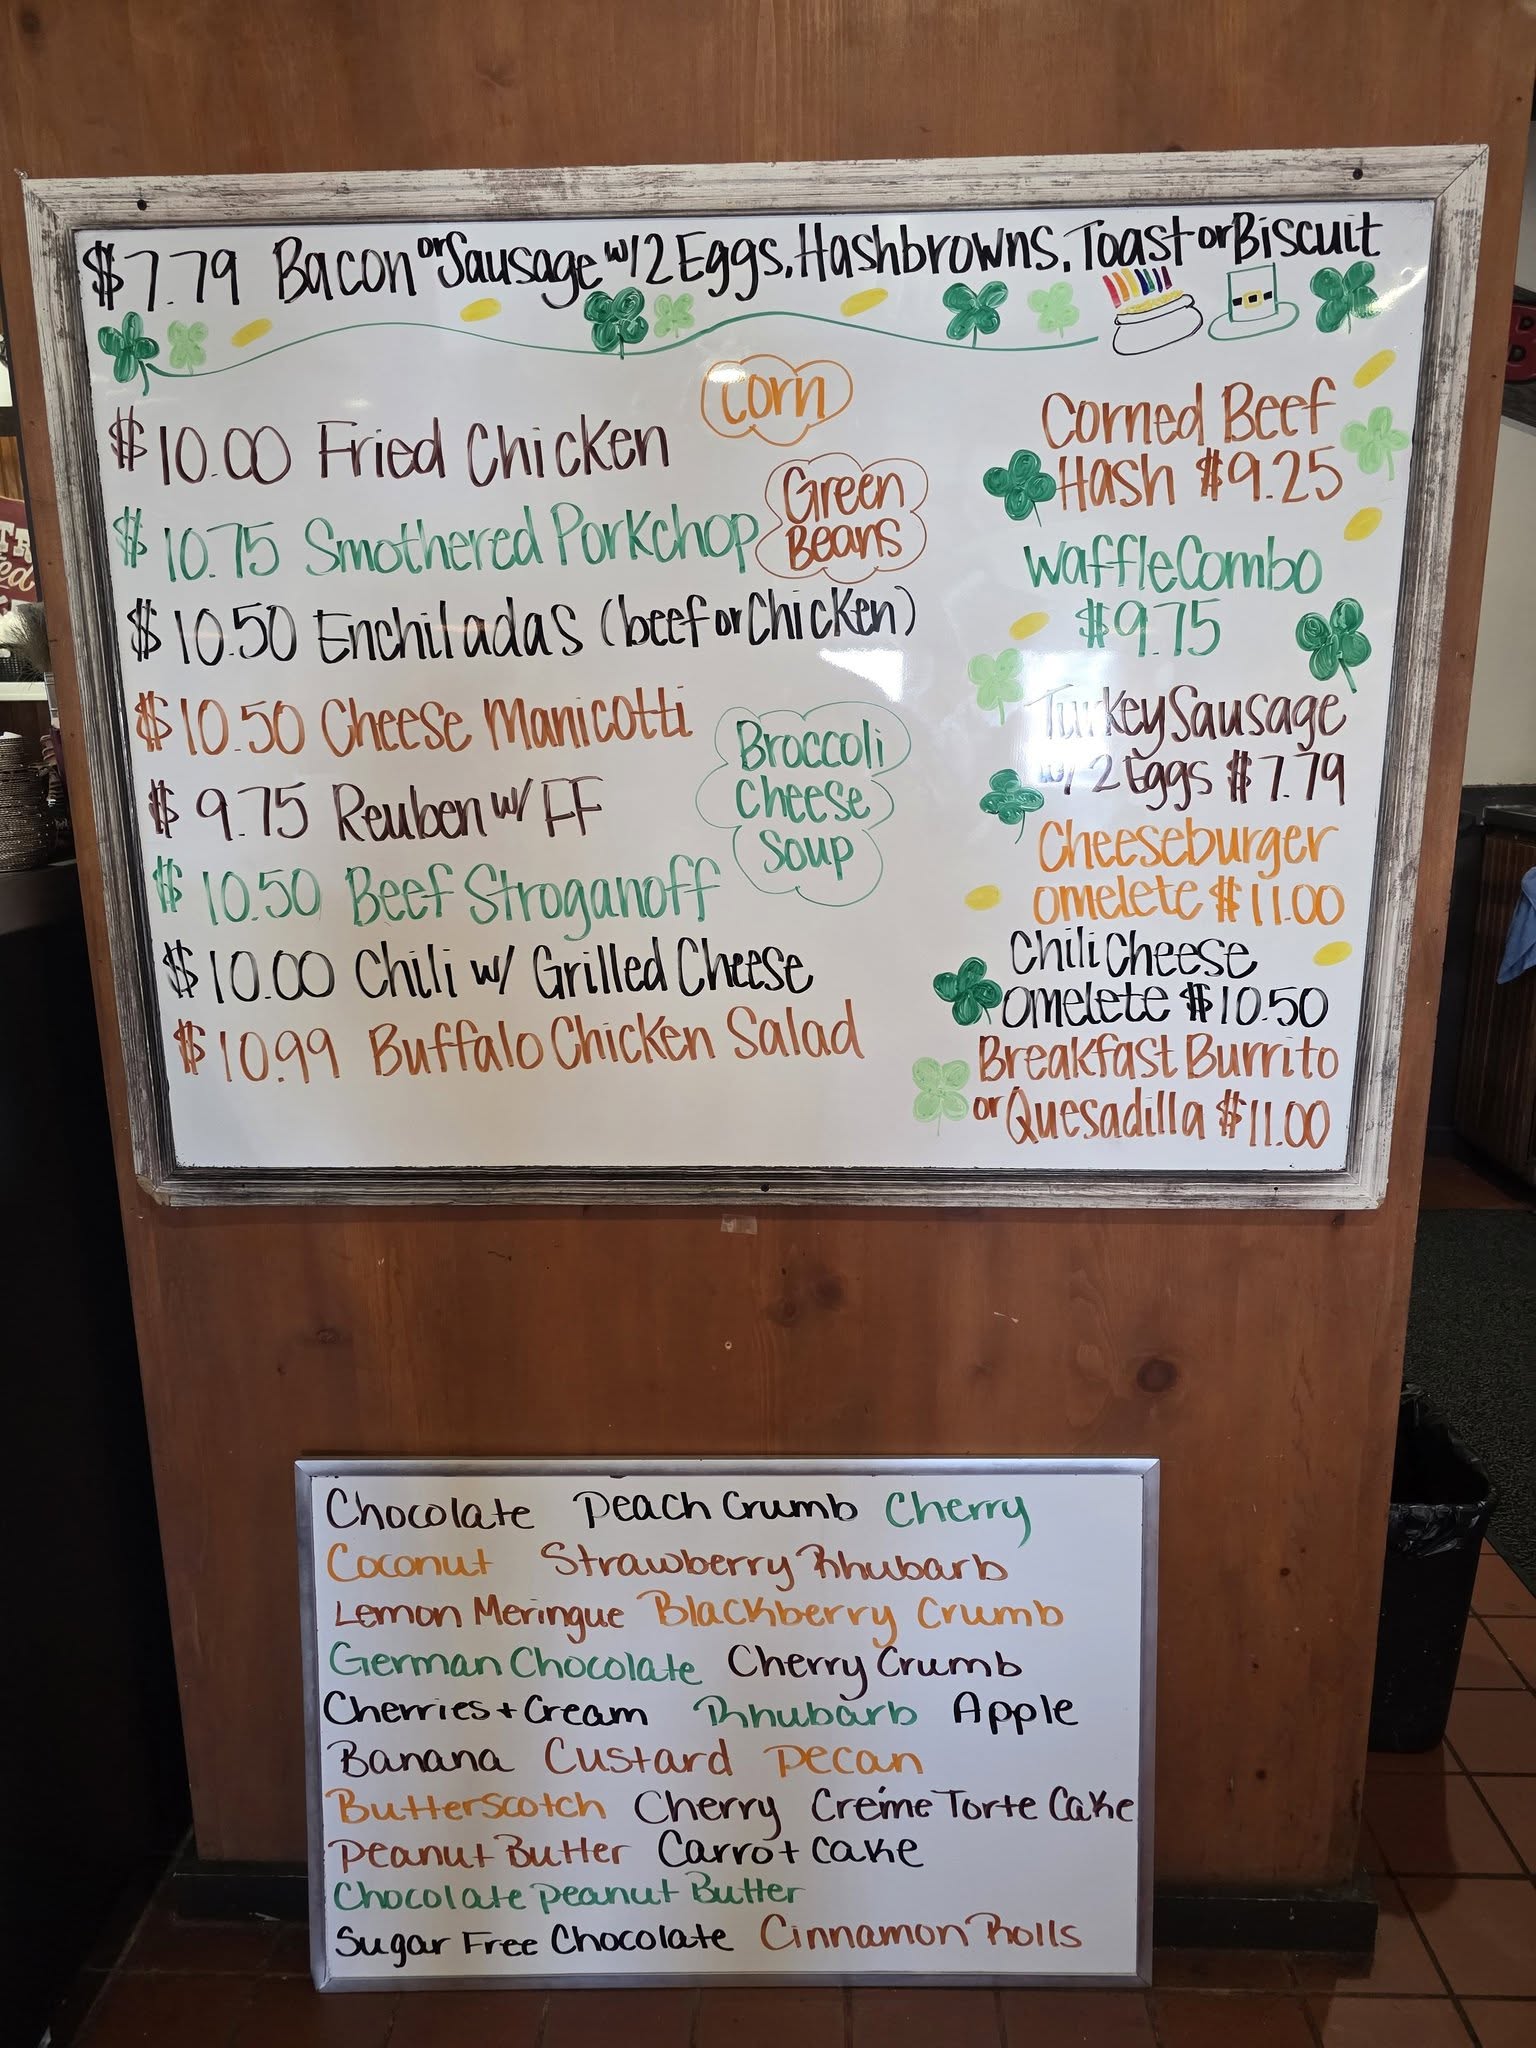 $7.79 Bacon or Sausage w/ 2 Eggs, Hashbrowns, Toast or Biscuit
Corn
$10.00 Fried Chicken
Green
Beans
$10.75 Smothered Porkchop
$10.50 Enchiladas (beef or Chicken)
$10.50 Cheese Manicotti
Broccoli
Cheese
Soup
$9.75 Reuben w/ FF
$10.50 Beef Stroganoff
$10.00 Chili w/ Grilled Cheese
$10.99 Buffalo Chicken Salad
Corned Beef
Hash $9.25
Waffle Combo
$9.75
Turkey Sausage
w/ 2 Eggs $7.79
Cheeseburger
omelete $11.00
Chili Cheese
omelete $10.50
Breakfast Burrito
or Quesadilla $11.00
Chocolate Peach Crumb Cherry
Coconut Strawberry Rhubarb
Lemon Meringue Blackberry Crumb
German Chocolate Cherry Crumb
Cherries + Cream Rhubarb Apple
Banana Custard Pecan
Butterscotch Cherry Créme Torte Cake
Peanut Butter Carrot Cake
Chocolate Peanut Butter
Sugar Free Chocolate Cinnamon Rolls